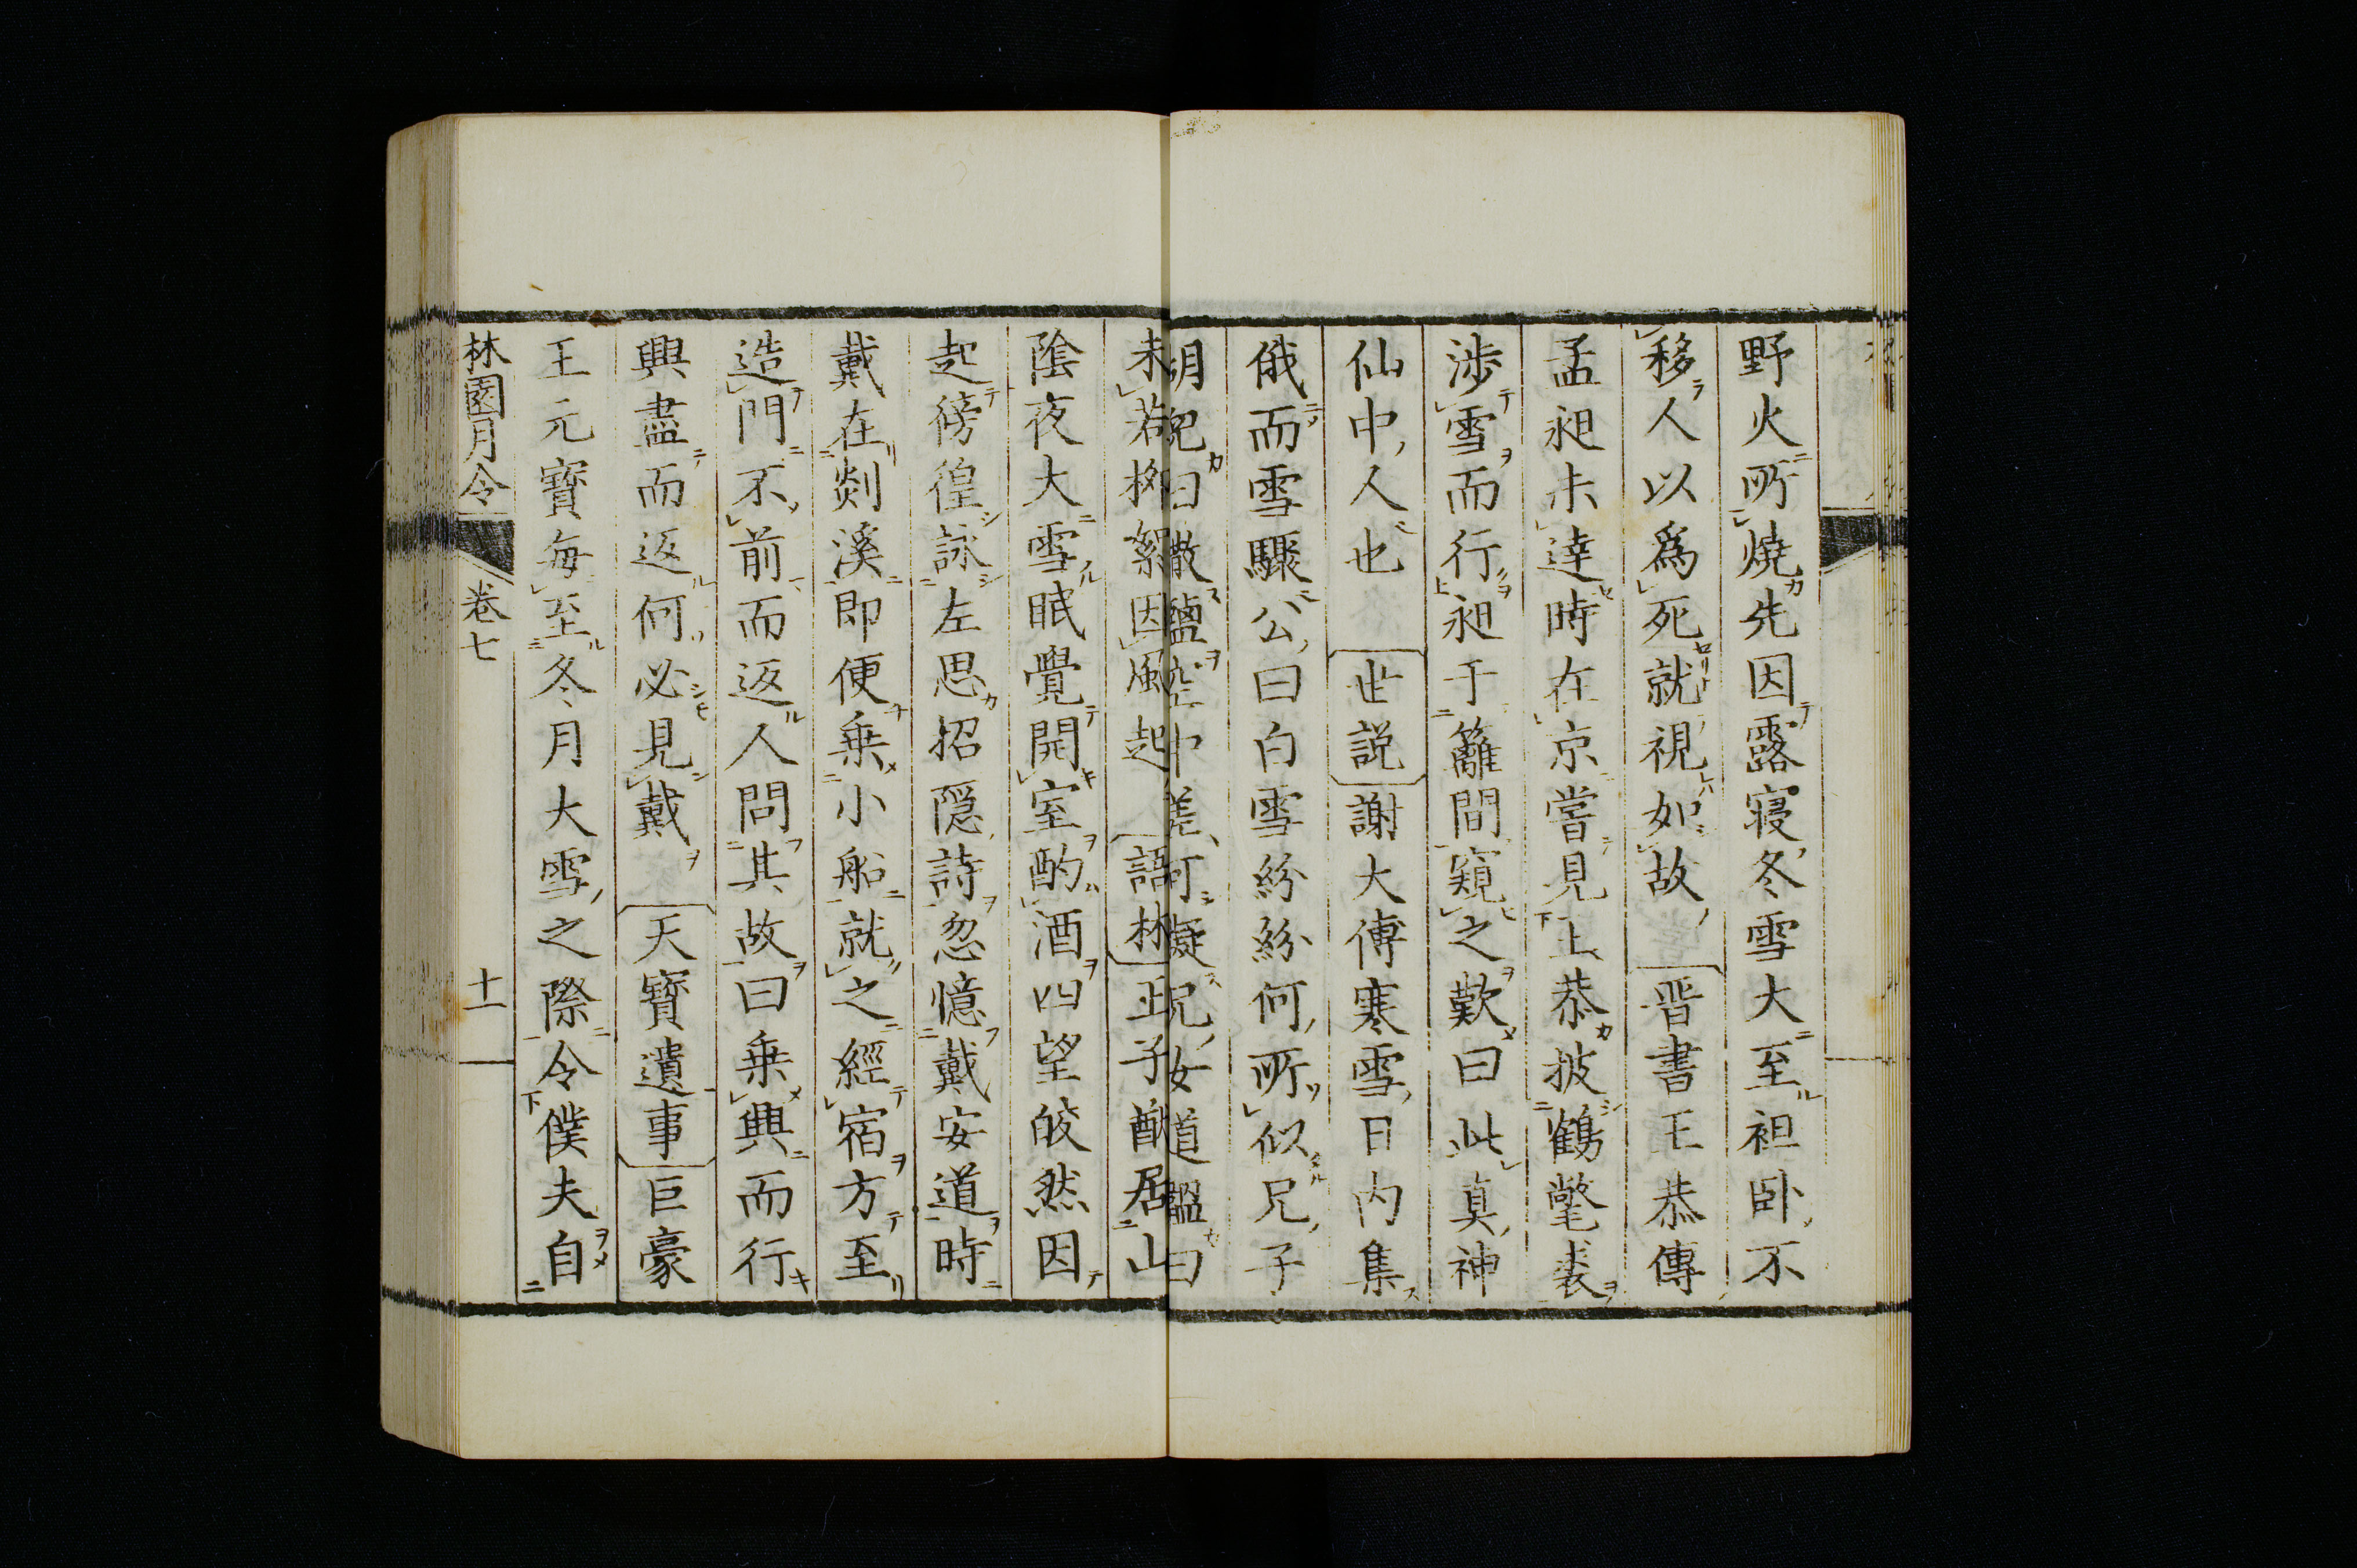 野火所燒先因露寝冬雪大至袒卧不
移人以爲死就視如故晋書王恭傳
孟昶未達時在京嘗見上恭披鶴氅裘
渉雪而行昶于籬間窺之歎曰此真神
仙中人也世説謝大傅寒雪日内集
俄而雪驟公曰白雪紛紛何所似兄子
胡兒曰撒鹽空中差可擬兄女道韞曰
未若栁絮因風起語林王子猷居山
陰夜大雪眠覺開室酌酒四望皎然因
起徬徨詠左思招隠詩忽憶戴安道時
戴在剡溪即便乗小船就之經宿方至
造門不前而返人問其故曰乗興而行
興盡而返何必見戴天寶遺事巨豪
王元寶毎至冬月大雪之際令僕夫自
林園月令 卷七 十一